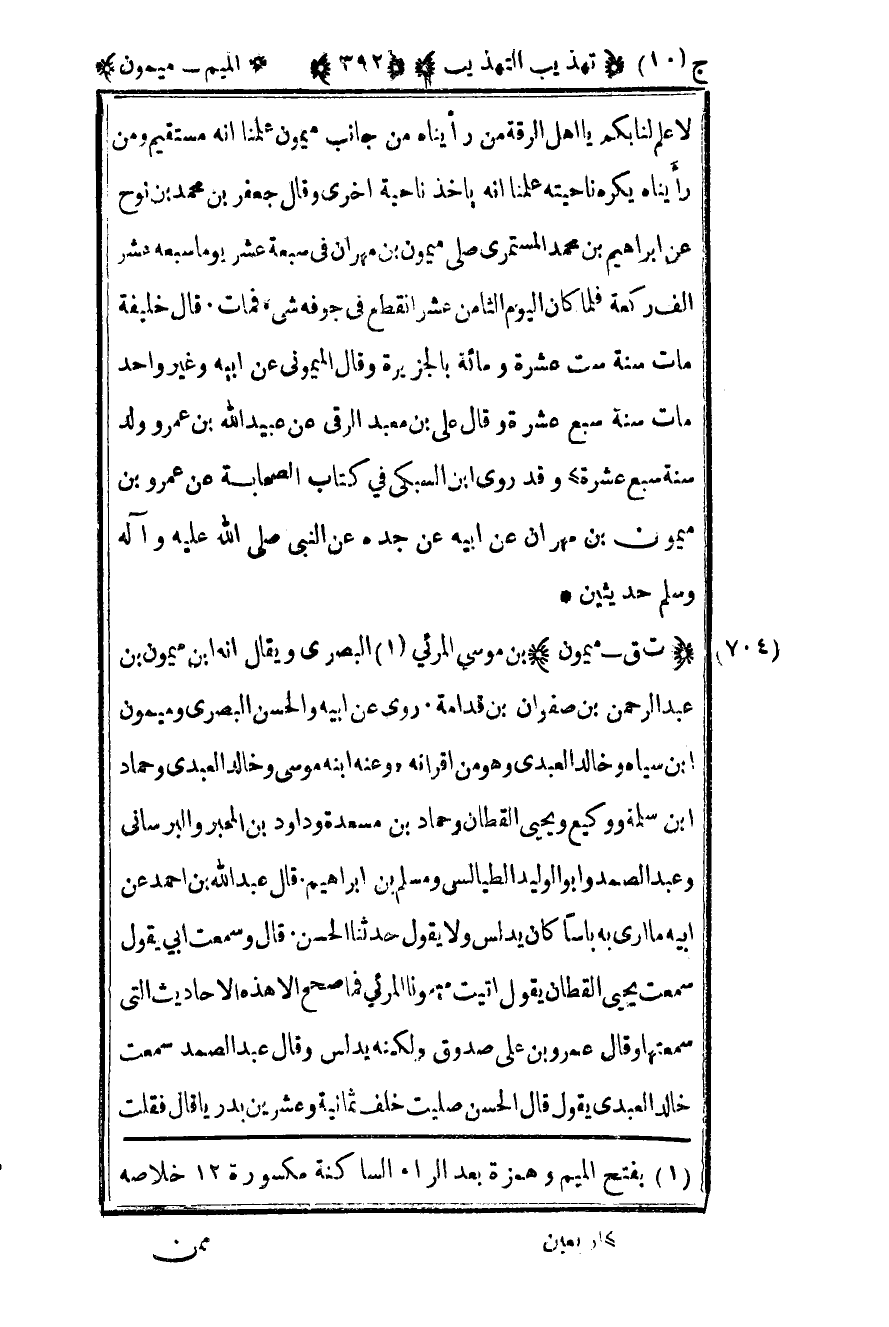 ج (١٠) ﴿ تهذيب التهذيب ﴾ ﴿٣٩٢﴾ * الميم ـ ميمون ﴾
لا علم لنا بكم يا اهل الرقة من رأيناه من جانب ميمون علمنا انه مستقيم ومن
رأيناه يكره ناحيته علمنا انه ياخذ ناحية اخرى وقال جعفر بن محمد بن نوح
عن ابراهيم بن محمد المستمرى صلى ميمون بن مهران فى سبعة عشر يوما سبعه عشر
الف ركعة فلما كان اليوم الثامن عشر انقطع فى جوفه شىء فمات . قال خليفة
مات سنة ست عشرة و مائة بالجزيرة وقال الميمونى عن ابيه وغير واحد
مات سنة سبع عشرة و قال على بن معبد الرقى عن عبيد الله بن عمرو ولد
سنة سبع عشرة > و قد روى ابن السبكى في كتاب الصحابة عن عمرو بن
ميمون بن مهران عن ابيه عن جده عن النبى صلى الله عليه و آله
وسلم حديثين *
(٧٠٤) ﴿ ت ق ـ ميمون ﴾ بن موسي المرئي (١) البصرى ويقال انه ابن ميمون بن
عبد الرحمن بن صفوان بن قدامة . روى عن ابيه والحسن البصرى وميمون
ابن سياه وخالد العبدى وهو من اقرانه . وعنه ابنه موسى وخالد العبدى وحماد
ابن سلمة ووكيع ويحيى القطان وحماد بن مسعدة وداود بن المحبر والبرسانى
وعبد الصمد وابو الوليد الطيالسى ومسلم بن ابراهيم . قال عبد الله بن احمد عن
ابيه ما ارى به باسا كان يدلس ولا يقول حدثنا الحسن . قال وسمعت ابي يقول
سمعت يحيى القطان يقول اتيت ميمونا المرئي فما صحح الا هذه الاحاديث التى
سمعتها وقال عمرو بن على صدوق ولكنه يدلس وقال عبد الصمد سمعت
خالد العبدى يقول قال الحسن صليت خلف ثمانية وعشرين بدريا قال فقلت
(١) بفتح الميم و همزة بعد الراء الساكنة مكسورة ١٢ خلاصه
> اربعين
ممن